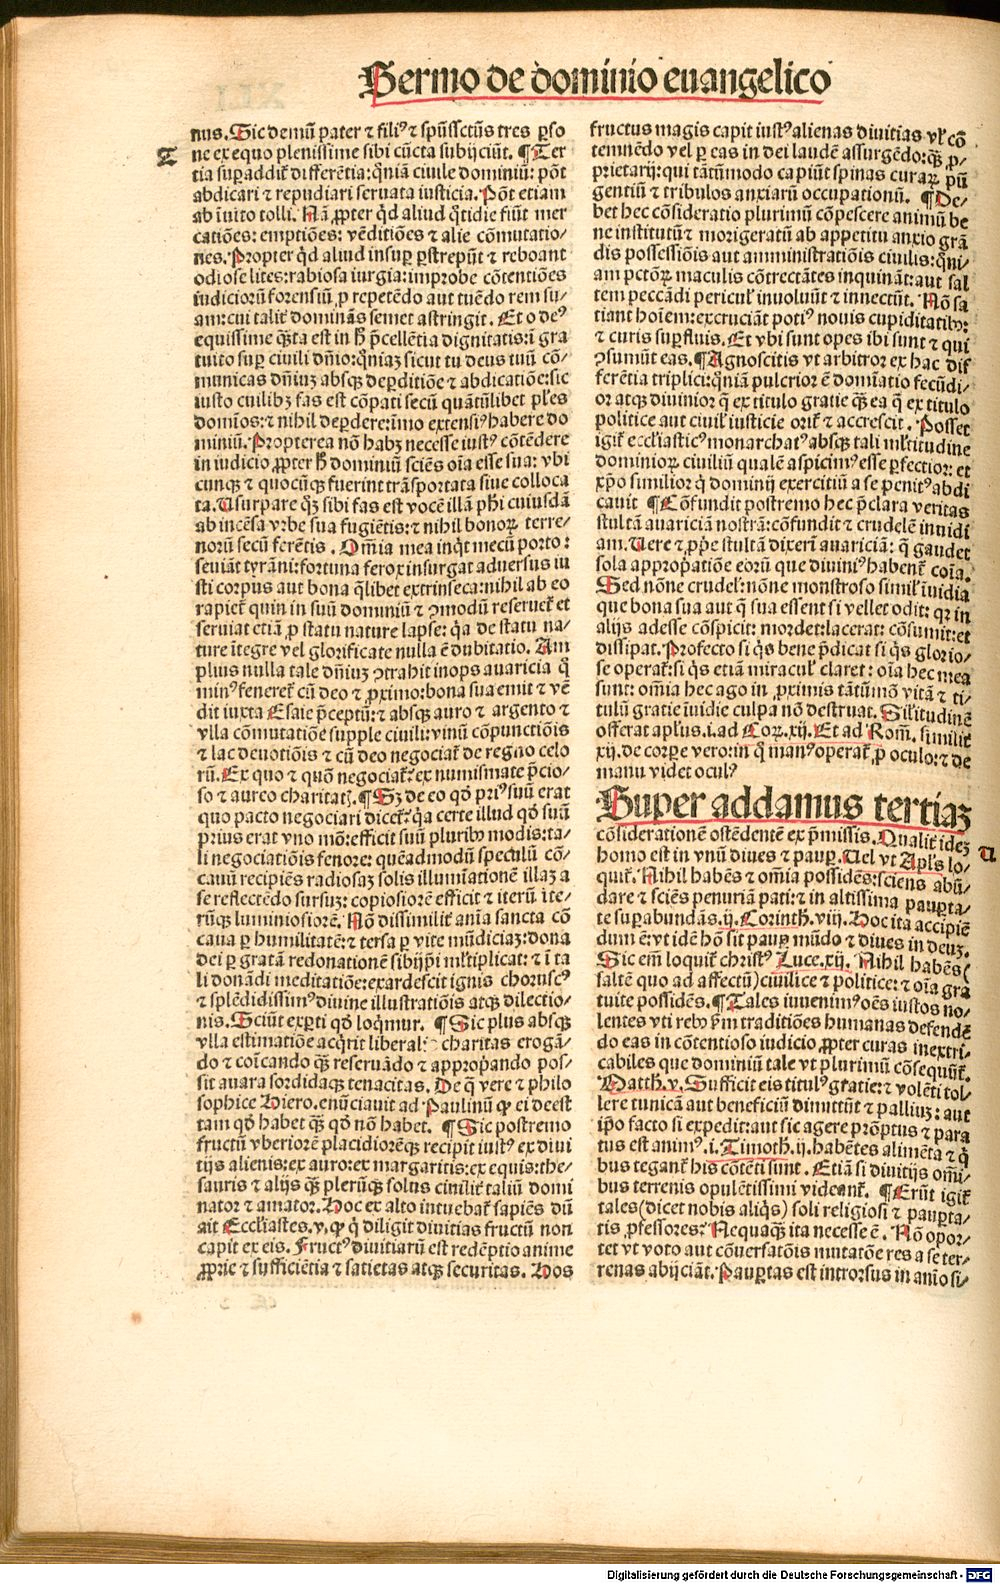 Sermo de dominio euangelico
nus. Sic demũ pater ⁊ filiꝰ ⁊ spũssctũs tres ꝑso
T
ne ex equo plenissime sibi cũcta subijciũt. ¶ Ter
tia supaddit᷑ differẽtia: qm̃ia ciuile dominiũ: põt
abdicari ⁊ repudiari seruata iusticia. Põt etiam
ab ĩuito tolli. Nã ꝓpter qđ aliud q̃tidie fiũt mer
catiões: emptiões: vẽditiões ⁊ alie cõmutatio/
nes. Propter qđ aliud insuꝑ ꝑstrepũt ⁊ reboant
odiose lites: rabiosa iurgia: improbe cõtentiões
iudiciorũ forensiũ, ꝓ repetẽdo aut tuẽdo rem su/
am: cui talit᷑ dominãs semet astringit. Et o deꝰ
equissime q̃sta est in ħ p̃cellẽtia dignitatis: ĩ gra
tuito suꝑ ciuili dñio: qm̃iaʒ sicut tu deus tuũ cõ/
municas dñiuʒ absqʒ deꝑditiõe ⁊ abdicatiõe: sic
iusto cuilibʒ fas est cõpati secũ quãtũlibet pl̃es
domĩos: ⁊ nihil deꝑdere: ĩmo extensiꝰ habere do
miniũ. Propterea nõ habʒ necesse iustꝰ cõtẽdere
in iudicio ꝓpter ħ dominiũ sciẽs oĩa esse sua: vbi
cunqʒ ⁊ quocũqʒ fuerint trãsportata siue colloca
ta. Usurpare qʒ sibi fas est vocẽ illã ph̃i cuiusdã
ab incẽsa vrbe sua fugiẽtis: ⁊ nihil bonoꝝ terre/
norũ secũ ferẽtis. Om̃ia mea inq̃t mecũ porto:
seuiãt tyrãni: fortuna ferox insurgat aduersus iu
sti corpus aut bona q̃libet extrinseca: nihil ab eo
rapiet᷑ quin in suũ dominiũ ⁊ ɔmodũ reseruet᷑ et
seruiat etiã ꝓ statu nature lapse: q̃a de statu na/
ture ĩtegre vel glorificate nulla ẽ dubitatio. Am
plius nulla tale dñiuʒ ɔtrahit inops auaricia q̃
minꝰ feneret᷑ cũ deo ⁊ ꝓximo: bona sua emit ⁊ vẽ
dit iuxta Esaie p̃ceptũ: ⁊ absqʒ auro ⁊ argento ⁊
vlla cõmutatiõe supple ciuili: vinũ cõpunctiõis
⁊ lac deuotiõis ⁊ cũ deo negociat᷑ de regno celo
rũ. Ex quo ⁊ quõ negociat᷑: ex numismate p̃cio/
so ⁊ aureo charitatʒ. ¶ Sʒ de eo qđ priꝰ suũ erat
quo pacto negociari dicet᷑: q̃a certe illud qđ suũ
prius erat vno mõ: efficit suũ pluribꝰ modis: ta/
li negociatiõis fenore: quẽadmodũ speculũ cõ/
cauũ recipiẽs radiosaʒ solis illumĩationẽ illaʒ a
se reflectẽdo sursuʒ: copiosiorẽ efficit ⁊ iterũ ĩte/
rũqʒ luminosiorẽ. Nõ dissimilit᷑ anĩa sancta cõ
caua ꝑ humilitatẽ: ⁊ tersa ꝑ vite mũdiciaʒ: dona
dei ꝑ gratã redonationẽ sibijp̃i ml̃tiplicat: ⁊ ĩ ta
li donãdi meditatiõe: exardescit ignis choruscꝰ
⁊ splẽdidissimꝰ diuine illustratiõis atqʒ dilectio/
nis. Sciũt exꝑti qđ loq̃mur. ¶ Sic plus absqʒ
vlla estimatiõe acq̃rit liberal᷑ charitas erogã/
do ⁊ coĩcando qʒ reseruãdo ⁊ appropãdo pos/
sit auara sordidaqʒ tenacitas. De q̃ vere ⁊ philo
sophice Hiero. enũciauit ad Paulinũ ꝙ ei deest
tam qđ habet qʒ qđ nõ habet. ¶ Sic postremo
fructũ vberiorẽ placidiorẽqʒ recipit iustꝰ ex diui
tijs alienis: ex auro: ex margaritis: ex equis: the/
sauris ⁊ alijs qʒ plerũqʒ solus ciuilit᷑ taliũ domi
nator ⁊ amator. Hoc ex alto intuebat᷑ sapiẽs dũ
ait Eccl̃iastes. v. ꝙ q̃ diligit diuitias fructũ non
capit ex eis. Fructꝰ diuitiarũ est redẽptio anime
ꝓprie ⁊ sufficiẽtia ⁊ satietas atqʒ securitas. Hos
fructus magis capit iustꝰ alienas diuitias vl̃ cõ
temnẽdo vel ꝑ eas in dei laudẽ assurgẽdo: qʒ ꝓ/
prietarij: qui tãtũmodo capiũt spinas curaꝝ pũ
gentiũ ⁊ tribulos anxiarũ occupationũ. ¶ De/
bet hec cõsideratio plurimũ cõpescere animũ be
ne institutũ ⁊ morigeratũ ab appetitu anxio grã
dis possessiõis aut amministratiõis ciuilis: qm̃i/
am pctõꝝ maculis cõtrectãtes inquinãt: aut sal
tem peccãdi pericul᷑ inuoluũt ⁊ innectũt. Nõ sa
tiant hoĩem: excruciãt potiꝰ nouis cupiditatibꝰ:
⁊ curis suꝑfluis. Et vbi sunt opes ibi sunt ⁊ qui
ɔsumũt eas. ¶ Agnoscitis vt arbitror ex hac dif
ferẽtia triplici: qm̃iã pulcrior ẽ domĩatio fecũdi/
or atqʒ diuinior q̃ ex titulo gratie qʒ ea q̃ ex titulo
politice aut ciuil᷑ iusticie orit᷑ ⁊ accrescit. Posset
igit᷑ eccl̃iasticꝰ monarchatꝰ absqʒ tali ml̃titudine
dominioꝝ ciuiliũ qualẽ aspicimꝰ esse ꝑfectior: et
xp̃o similior q̃ dominij exercitiũ a se penitꝰ abdi
cauit ¶ Cõfundit postremo hec p̃clara veritas
stultã auariciã nostrã: cõfundit ⁊ crudelẽ inuidi
am. Vere ⁊ ꝓp̃e stultã dixerĩ auariciã: q̃ gaudet
sola appropatiõe eorũ que diuiniꝰ habent᷑ coĩa.
Sed nõne crudel᷑: nõne monstroso simil᷑ ĩuidia
que bona sua aut q̃ sua essent si vellet odit: qꝛ in
alijs adesse cõspicit: mordet: lacerat: cõsumit: et
dissipat. Profecto si q̃s bene p̃dicat si q̃s glorio/
se operat᷑: si q̃s etiã miracul᷑ claret: oĩa hec mea
sunt: om̃ia hec ago in ꝓximis tãtũmõ vitã ⁊ ti/
tulũ gratie ĩuidie culpa nõ destruat. Sil̃itudinẽ
offerat apl̃us. i. ad Coꝝ. xij. Et ad Rom̃. similit᷑
xij. de corꝑe vero: in q̃ manꝰ operat᷑ ꝓ oculo: ⁊ de
manu videt oculꝰ
Super addamus tertiaʒ
cõsiderationẽ ostẽdentẽ ex p̃missis. Qualit᷑ idẽʒ
U
homo est in vnũ diues ⁊ pauꝑ. Uel vt Apl̃s lo/
quit᷑. Nihil habẽs ⁊ om̃ia possidẽs: sciens abũ/
dare ⁊ sciẽs penuriã pati: ⁊ in altissima pauꝑta/
te suꝑabundãs. ij. Corinth̃. viij. Hoc ita accipiẽ
dum ẽ: vt idẽ hõ sit pauꝑ mũdo ⁊ diues in deuʒ.
Sic em̃ loquit᷑ christꝰ Luce. xij. Nihil habẽs(
saltẽ quo ad affectũ) ciuilice ⁊ politice: ⁊ oĩa gra
tuite possidẽs. ¶ Tales iuuenimꝰ oẽs iustos no/
lentes vti rebꝰ ẽm traditiões humanas defendẽ
do eas in cõtentioso iudicio ꝓpter curas inextri/
cabiles que dominiũ tale vt plurimũ cõsequũt᷑.
Matth̃. v. Sufficit eis titulꝰ gratie: ⁊ volẽti tol/
lere tunicã aut beneficiũ dimittũt ⁊ palliuʒ: aut
ip̃o facto si expedit: aut sic agere prõptus ⁊ para
tus est animꝰ. i. Timoth̃. ij. habẽtes alimẽta ⁊ q̃
bus tegant᷑ his cõtẽti sunt. Etiã si diuitijs om̃i/
bus terrenis opulẽtissimi videant᷑. ¶ Erũt igit᷑
tales (dicet nobis aliq̃s) soli religiosi ⁊ pauꝑta/
tis ꝓfessores? Nequaqʒ ita necesse ẽ. Nõ opor/
tet vt voto aut cõuersatõis mutatõe res a se ter/
renas abijciãt. Pauꝑtas est introrsus in anĩo si/
Digitalisierung gefördert durch die Deutsche Forschungsgemeinschaft - DFG